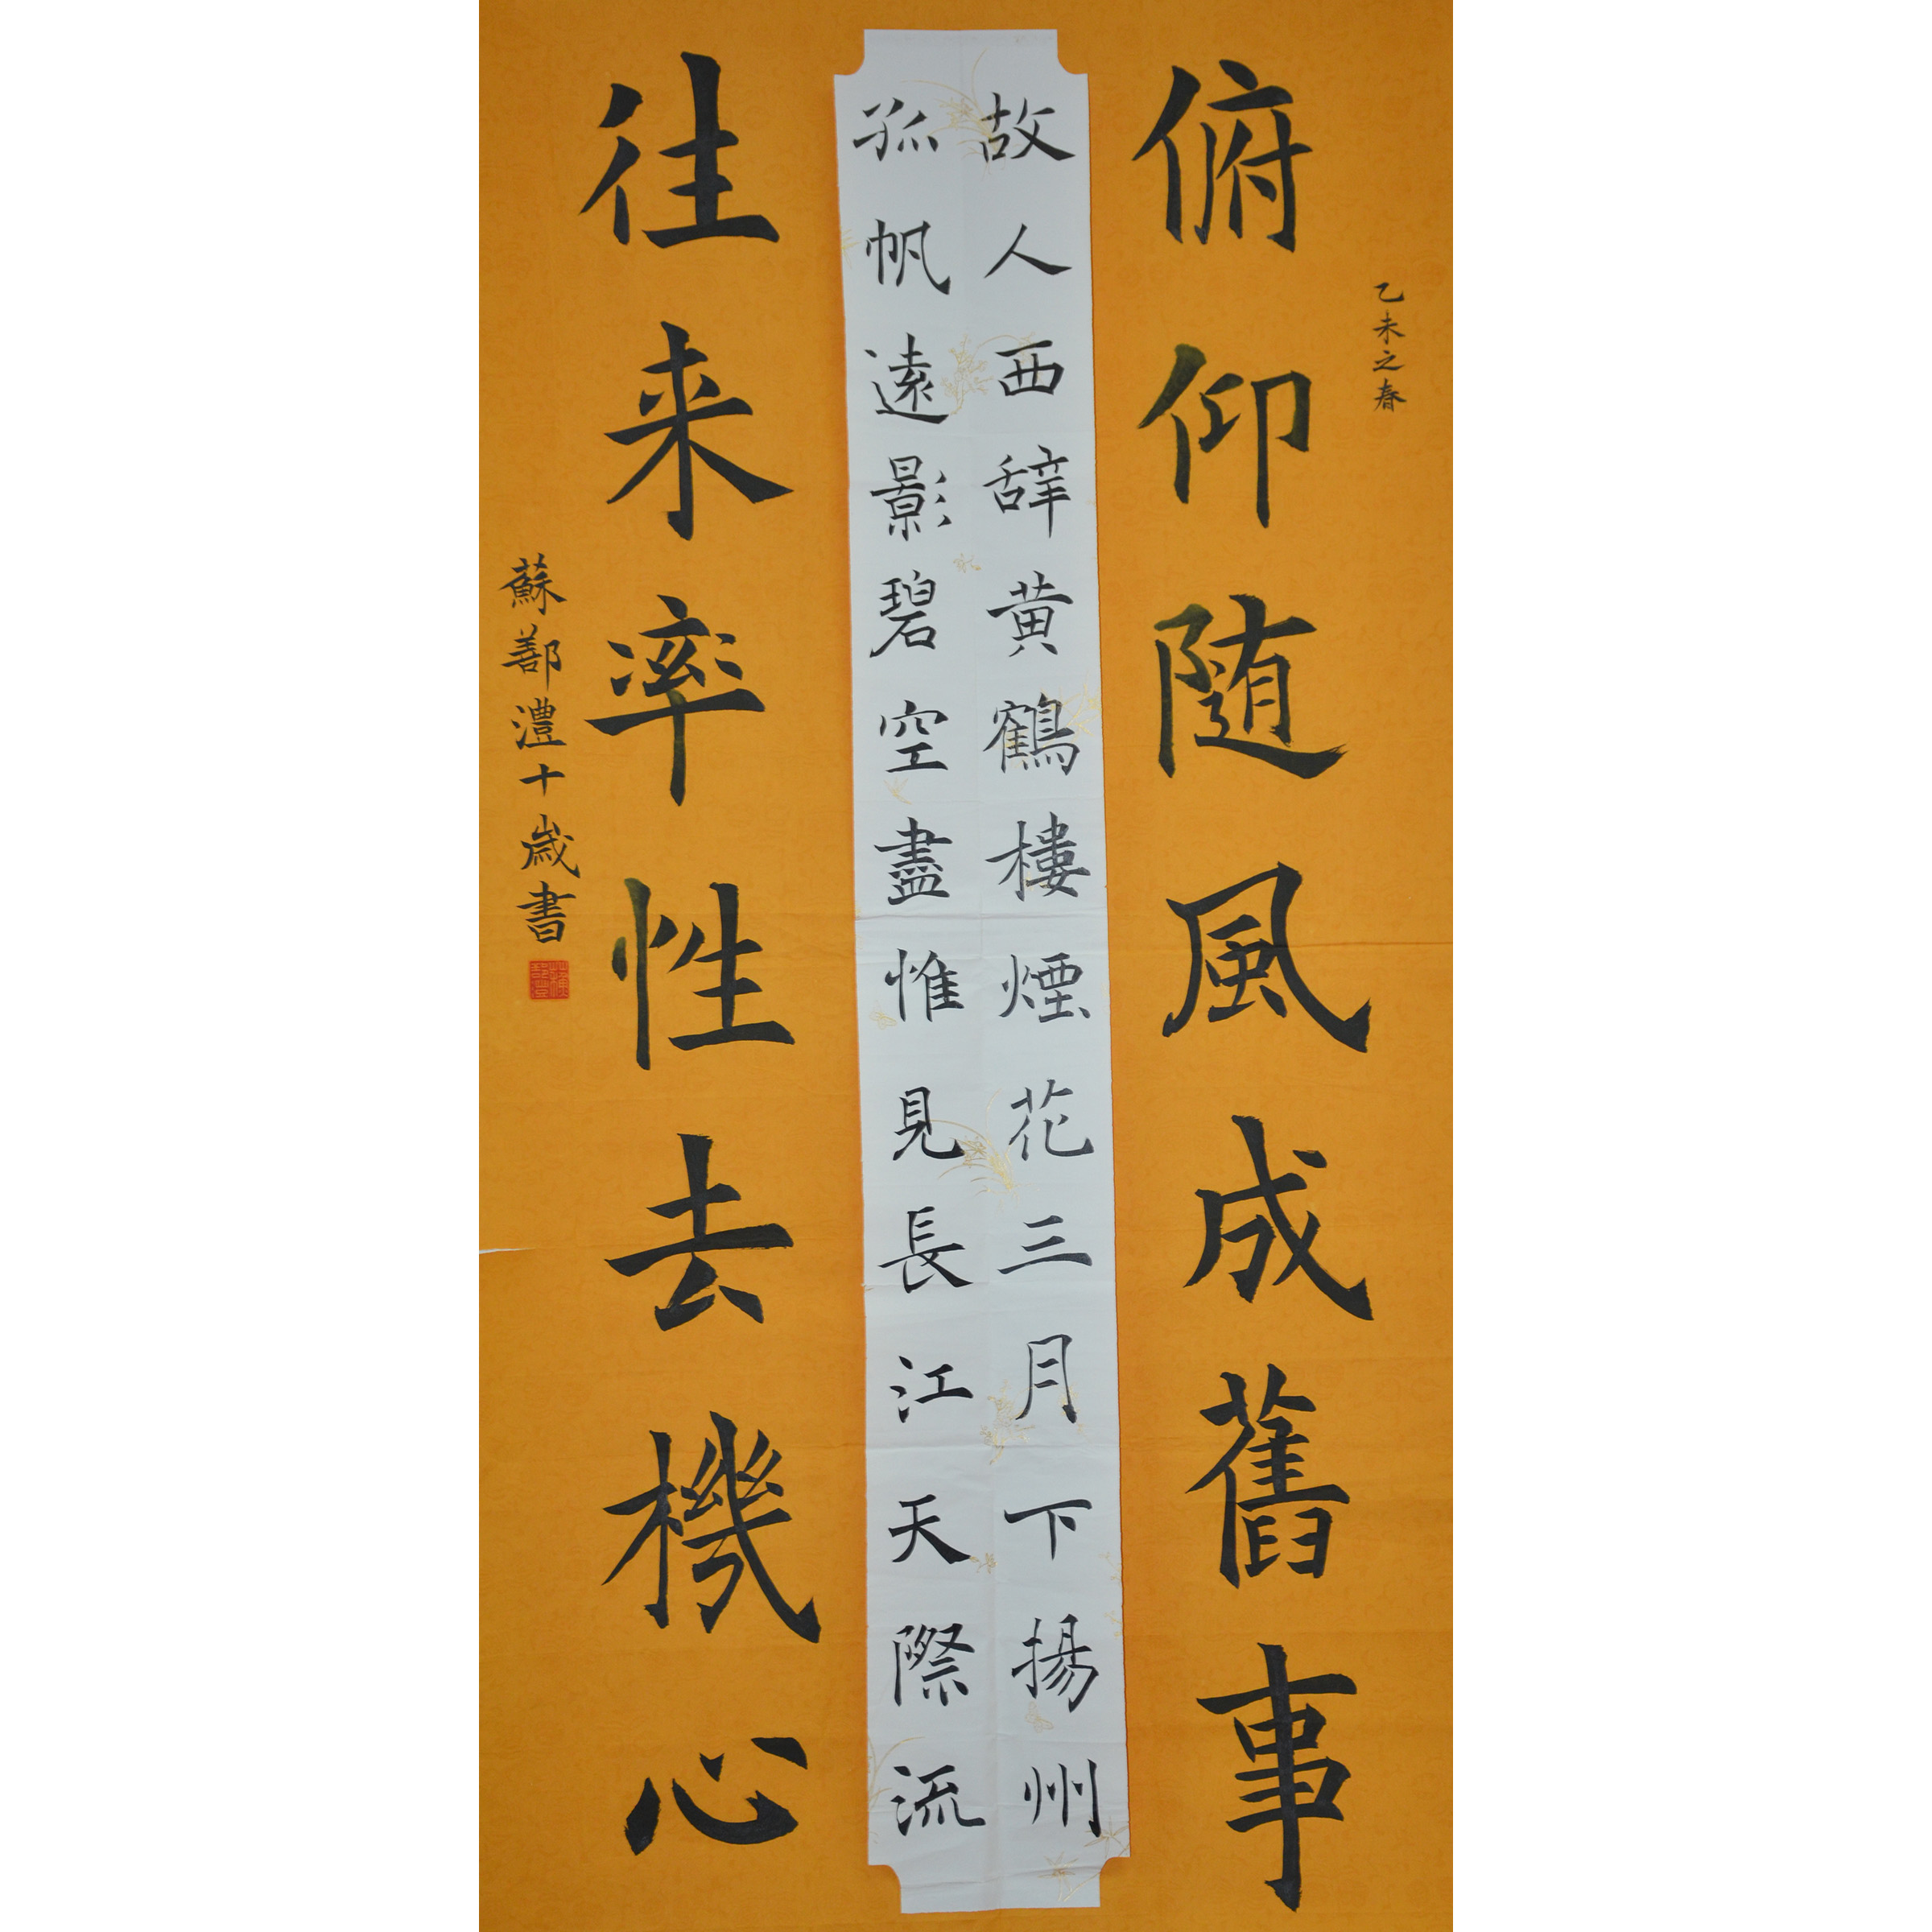 乙未之春
俯仰随風成舊事
故人西辞黄鶴樓煙花三月下揚州
孤帆遠影碧空盡惟見長江天際流
往来率性去機心
蘇鄯澧十歲書